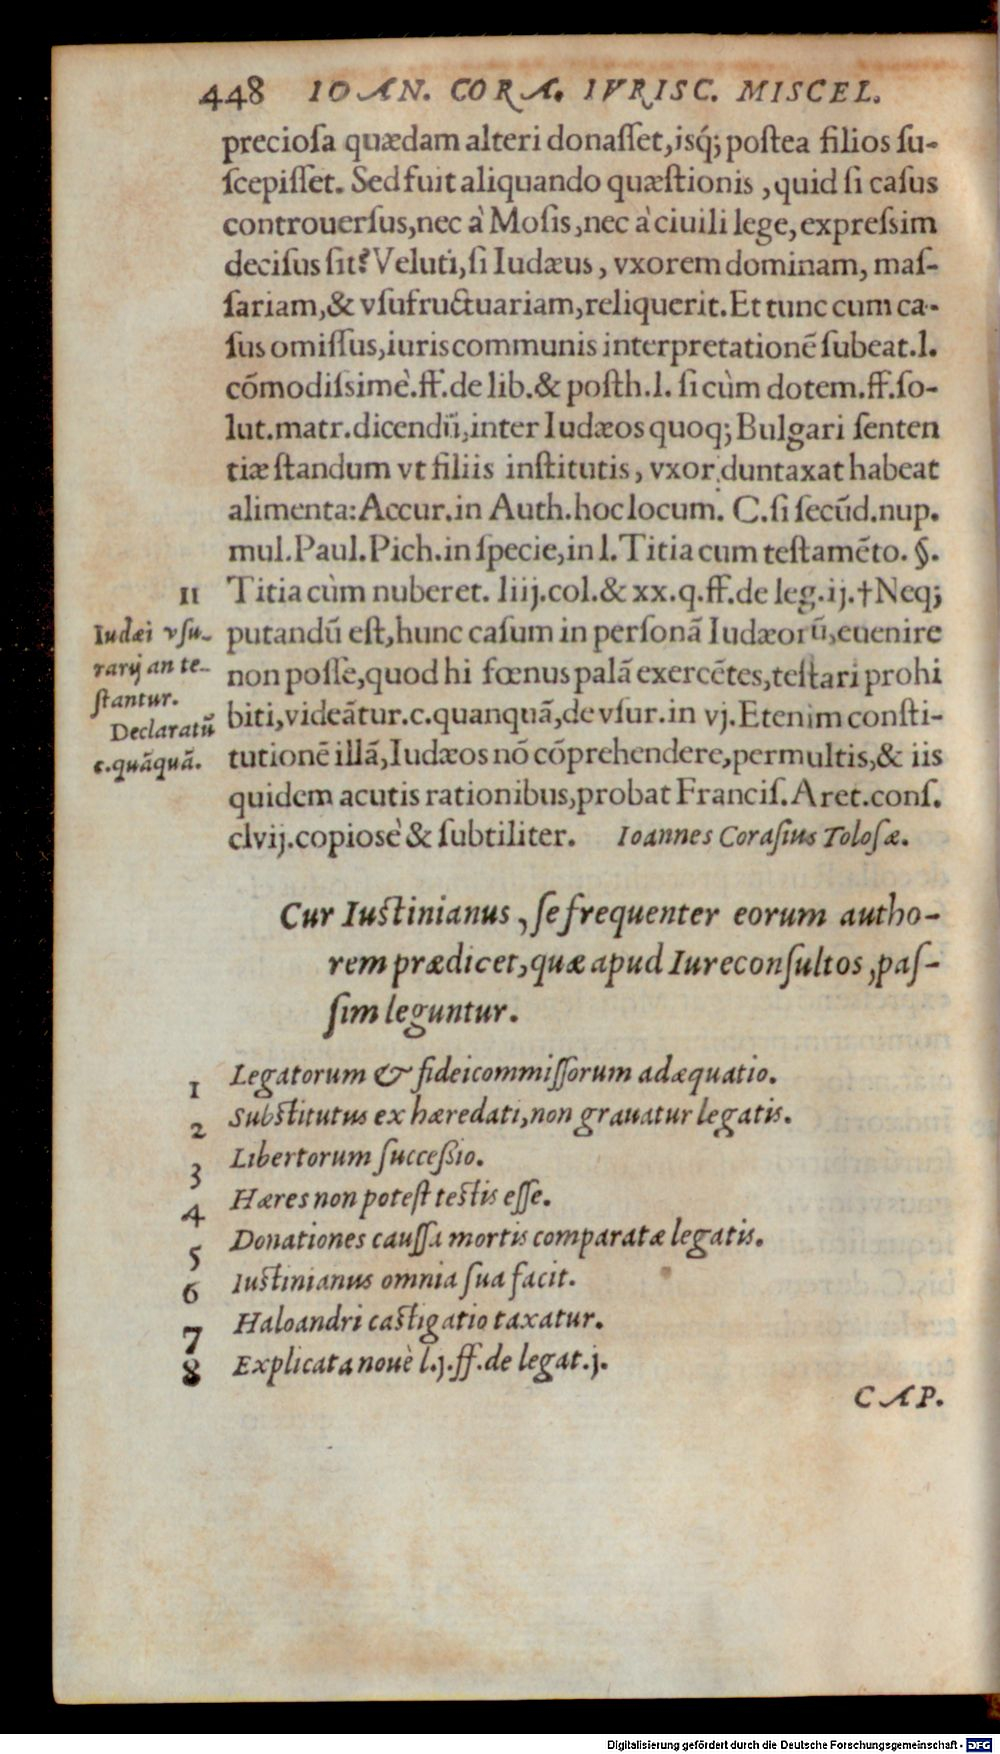 448 IOAN. CORA. IVRISC. MISCEL.
preciosa quædam alteri donasset, isq́; postea filios su-
scepisset. Sed fuit aliquando quæstionis, quid si casus
controuersus, nec à Mosis, nec à ciuili lege, expressim
decisus sit? Veluti, si Iudæus, vxorem dominam, mas-
sariam, & vsufructuariam, reliquerit. Et tunc cum ca-
sus omissus, iuris communis interpretationẽ subeat. l.
cõmodissimè. ff. de lib. & posth. l. si cùm dotem. ff. so-
lut. matr. dicendũ, inter Iudæos quoq; Bulgari senten
tiæ standum vt filiis institutis, vxor duntaxat habeat
alimenta: Accur. in Auth. hoc locum. C. si secũd. nup.
mul. Paul. Pich. in specie, in l. Titia cum testamẽto. §.
11 Titia cùm nuberet. liij. col. & xx. q. ff. de leg. ij. † Neq;
Iudæi vsu-
rarij an te-
stantur.
Declaratũ
c. quãquã.
putandũ est, hunc casum in personã Iudæorũ, euenire
non posse, quod hi fœnus palã exercẽtes, testari prohi
biti, videãtur. c. quanquã, de vsur. in vj. Etenim consti-
tutionẽ illã, Iudæos nõ cõprehendere, permultis, & iis
quidem acutis rationibus, probat Francis. Aret. cons.
clvij. copiosè & subtiliter. Ioannes Corasius Tolosæ.
Cur Iustinianus, se frequenter eorum autho-
rem prædicet, quæ apud Iureconsultos, pas-
sim leguntur.
1 Legatorum & fideicommissorum adæquatio.
2 Substitutus ex hæredati, non grauatur legatis.
3 Libertorum successio.
4 Hæres non potest testis esse.
5 Donationes caussa mortis comparatæ legatis.
6 Iustinianus omnia sua facit.
7 Haloandri castigatio taxatur.
8 Explicata nouè l. j. ff. de legat. j.
CAP.
Digitalisierung gefördert durch die Deutsche Forschungsgemeinschaft - DFG